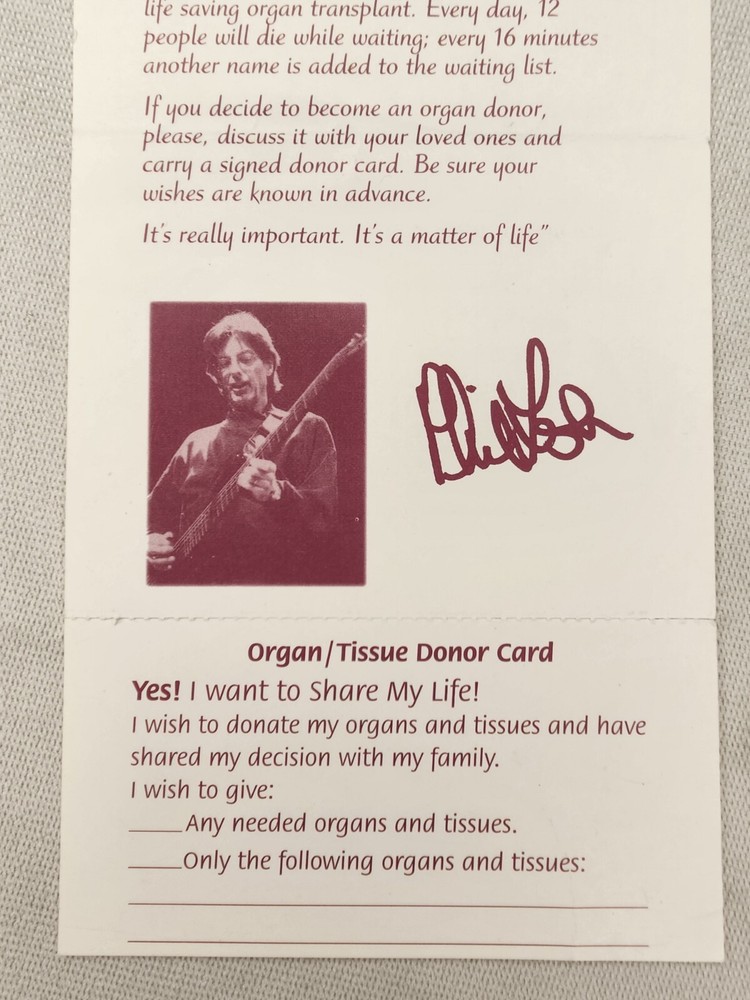 life saving organ transplant. Every day, 12
people will die while waiting; every 16 minutes
another name is added to the waiting list.
If you decide to become an organ donor,
please, discuss it with your loved ones and
carry a signed donor card. Be sure your
wishes are known in advance.
It's really important. It's a matter of life"
Phil Lesh
Organ/Tissue Donor Card
Yes! I want to Share My Life!
I wish to donate my organs and tissues and have
shared my decision with my family.
I wish to give:
_____Any needed organs and tissues.
_____Only the following organs and tissues: